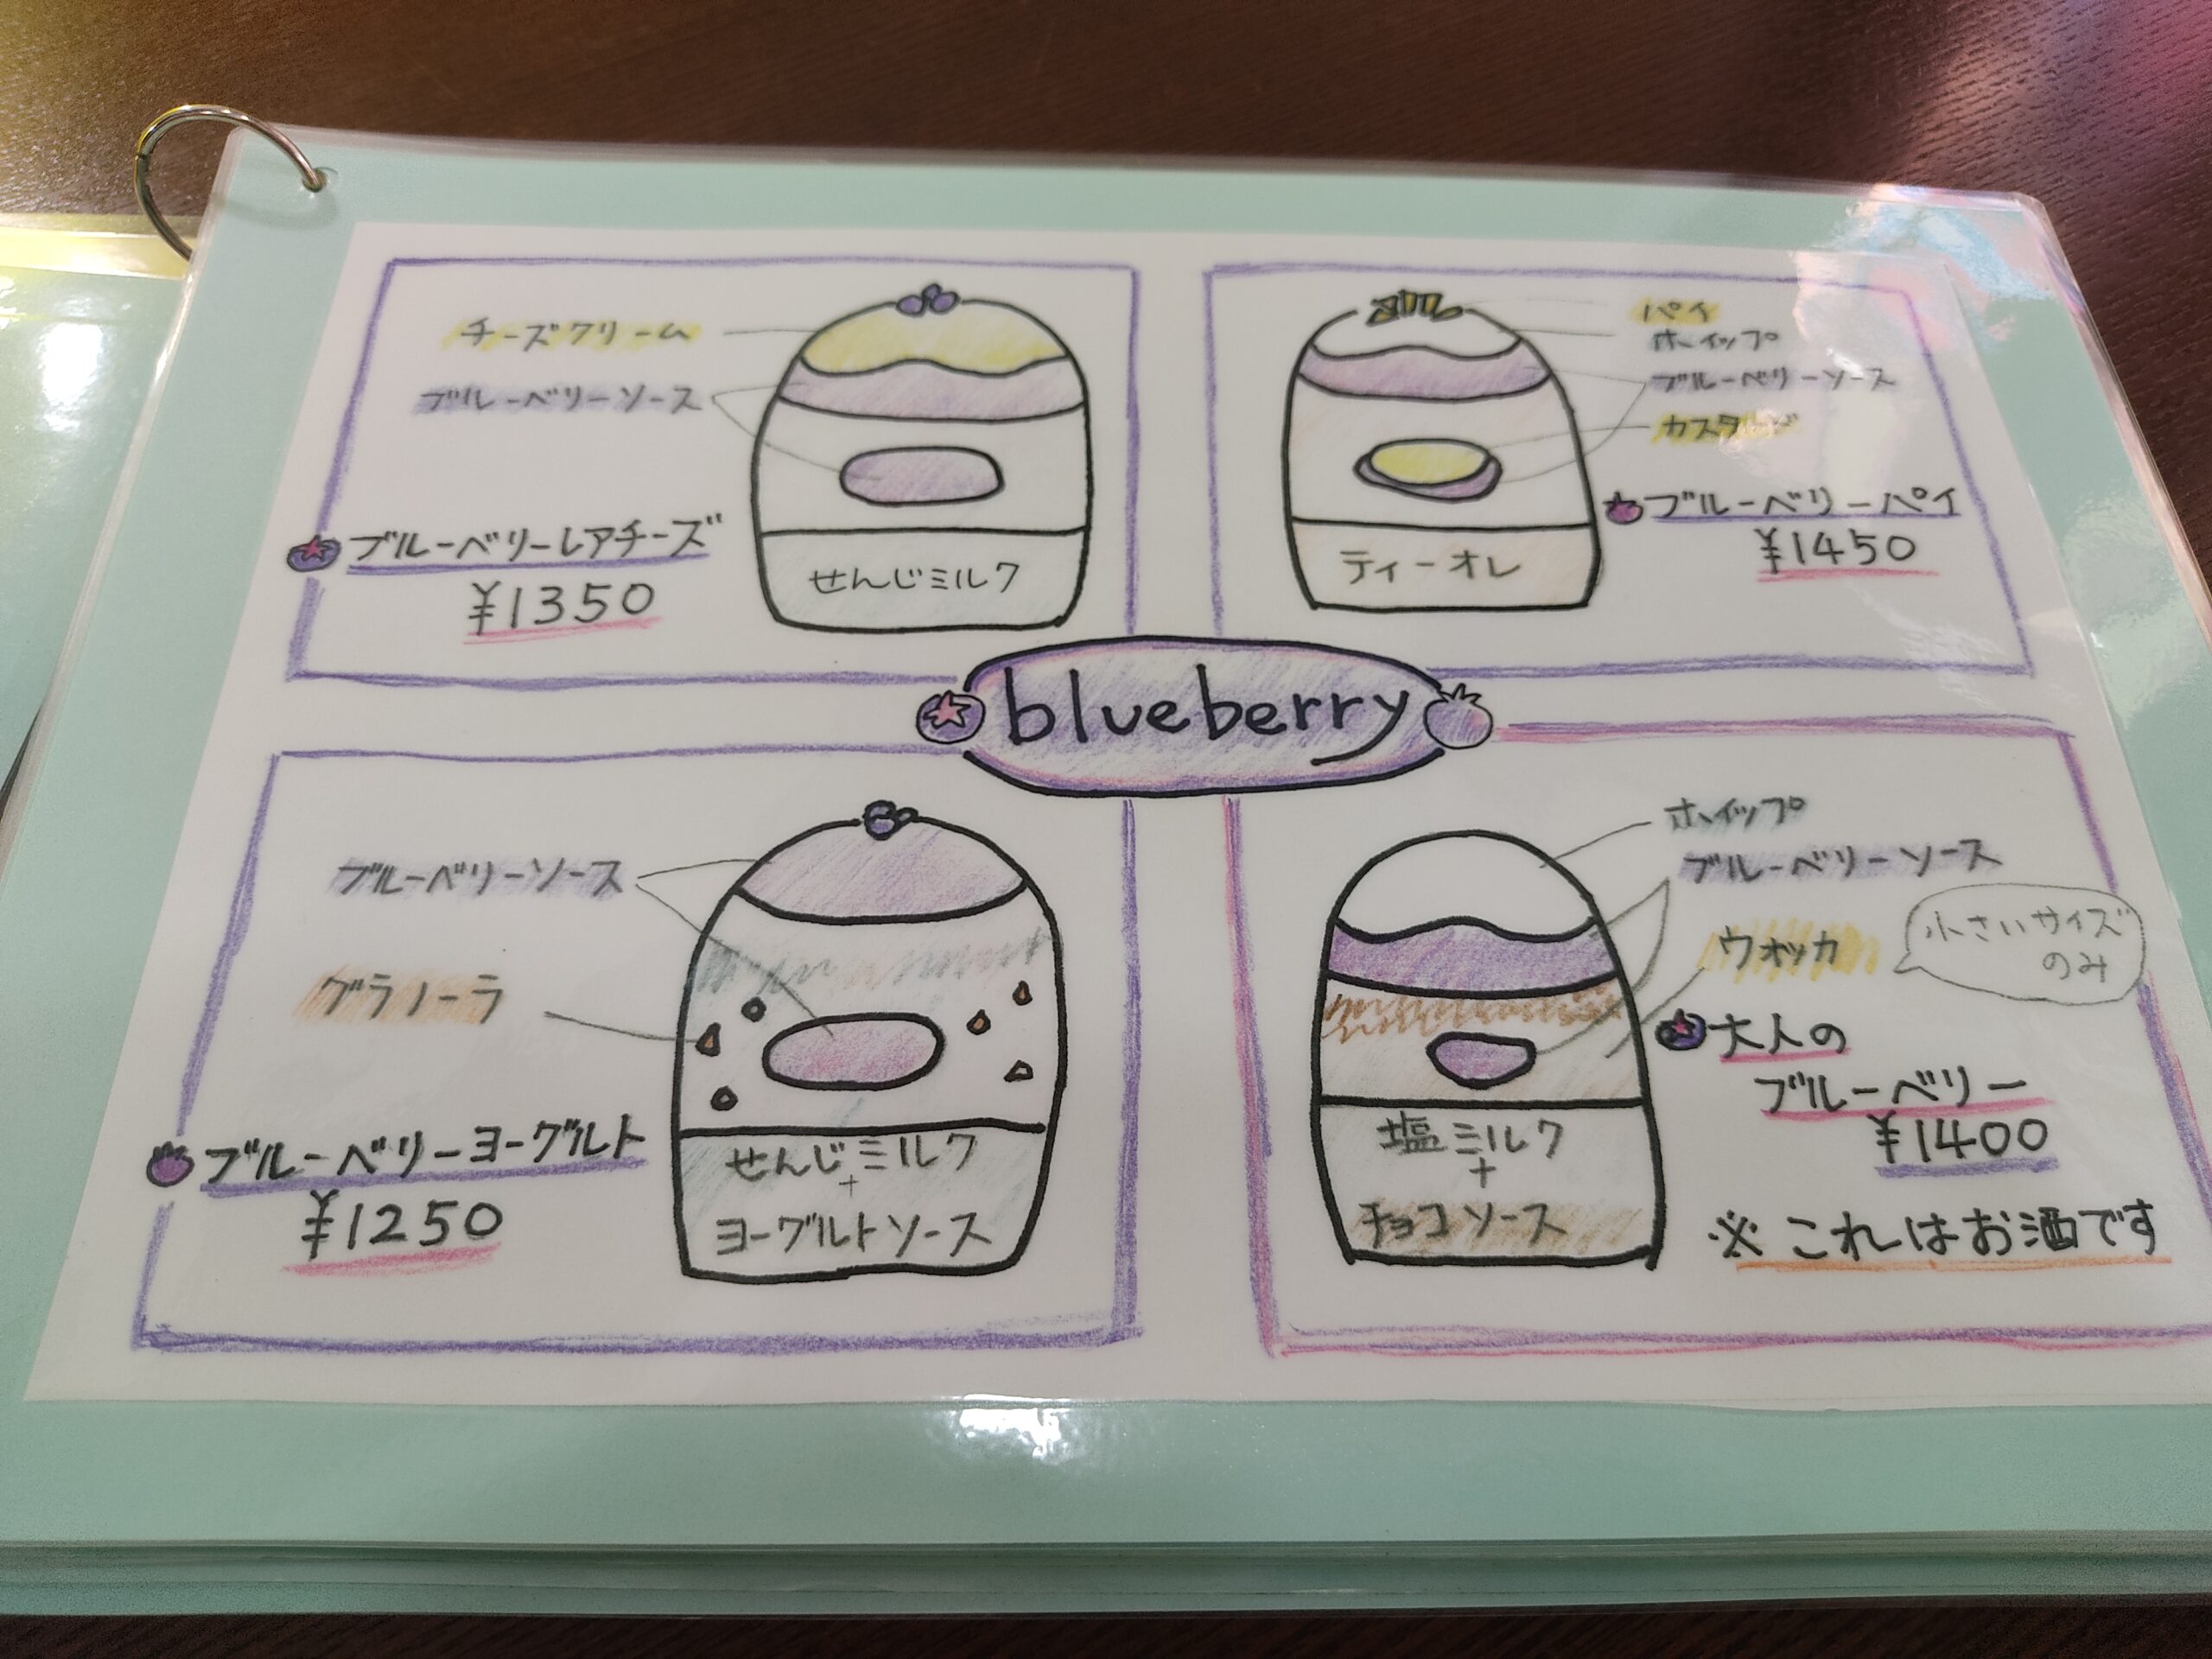 チーズクリーム
ブルーベリーソース
せんじミルク
ブルーベリーレアチーズ
¥1350
パイ
ホイップ
ブルーベリーソース
カスタード
ティーオレ
ブルーベリーパイ
¥1450
blueberry
ブルーベリーソース
グラノーラ
せんじミルク
+
ヨーグルトソース
ブルーベリーヨーグルト
¥1250
ホイップ
ブルーベリーソース
ウオッカ
小さいサイズ
のみ
塩ミルク
+
チョコソース
大人の
ブルーベリー
¥1400
※これはお酒です